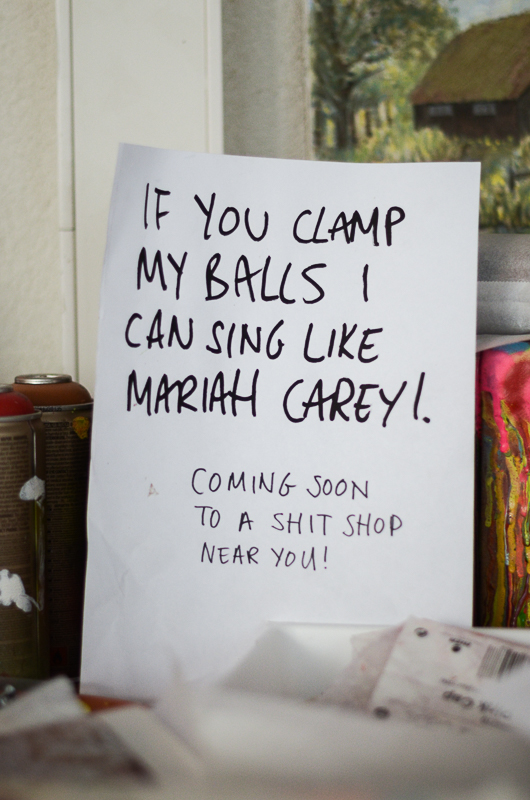 IF YOU CLAMP
MY BALLS I
CAN SING LIKE
MARIAH CAREY!.
COMING SOON
TO A SHIT SHOP
NEAR YOU!